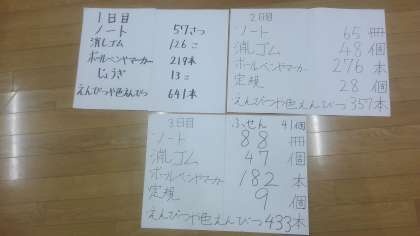 1日目
ノート 57さつ
消しゴム 126こ
ボールペンやマーカー 219本
じょうぎ 13こ
えんぴつや色えんぴつ 641本
2日目
ノート 65冊
消しゴム 48個
ボールペンヤマーカー 276本
定規 28個
えんぴつや色えんぴつ 357本
3日目 ふせん 41個
ノート 88冊
消しゴム 47個
ボールペンヤマーカー 182本
定規 9個
えんぴつや色えんぴつ 433本